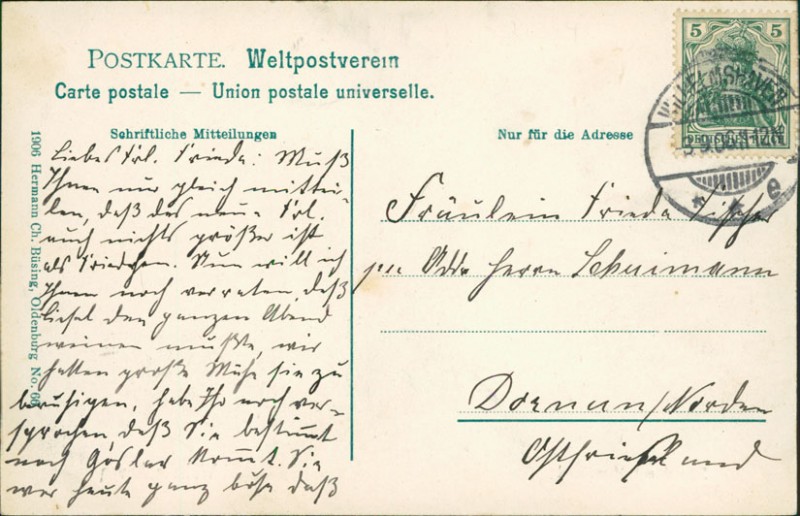 POSTKARTE. Weltpostverein
Carte postale — Union postale universelle.
Schriftliche Mitteilungen
Nur für die Adresse
1906 Hermann Ch. Büsing, Oldenburg No. 66
5 5
WILHELMSHAVEN
Liebes Frl. Frieda! Muß
Ihnen nur gleich mittei-
len, daß das neue Frl.
auch nichts größer ist
als Friedchen. Nun will ich
Ihnen noch verraten, daß
Liesel den ganzen Abend
weinen mußte, wir
hatten große Mühe sie zu
beruhigen, habe Ihr noch ver-
sprochen daß Sie bestimmt
nach Goslar kommt. Sie
war heute ganz böse daß
Fräulein Frieda Fischer
Herrn Schuimann
Dornum/Norden
Ostfriesland